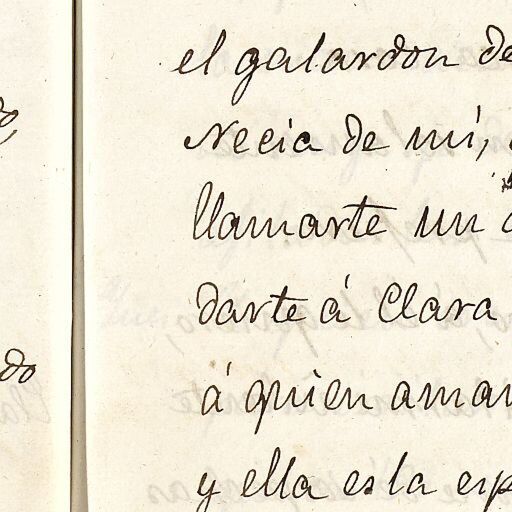 el galardon de
Necia de mí,
llamarte un
darte á Clara
á quien aman
y ella es la esp
do
do